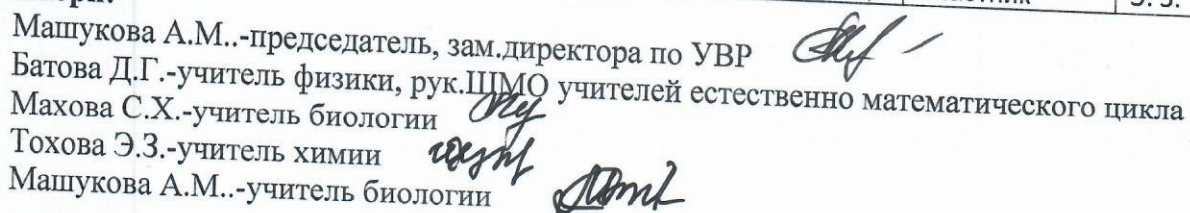 Машукова А.М..-председатель, зам.директора по УВР
Батова Д.Г.-учитель физики, рук.ШМО учителей естественно математического цикла
Махова С.Х.-учитель биологии
Тохова Э.З.-учитель химии
Машукова А.М..-учитель биологии